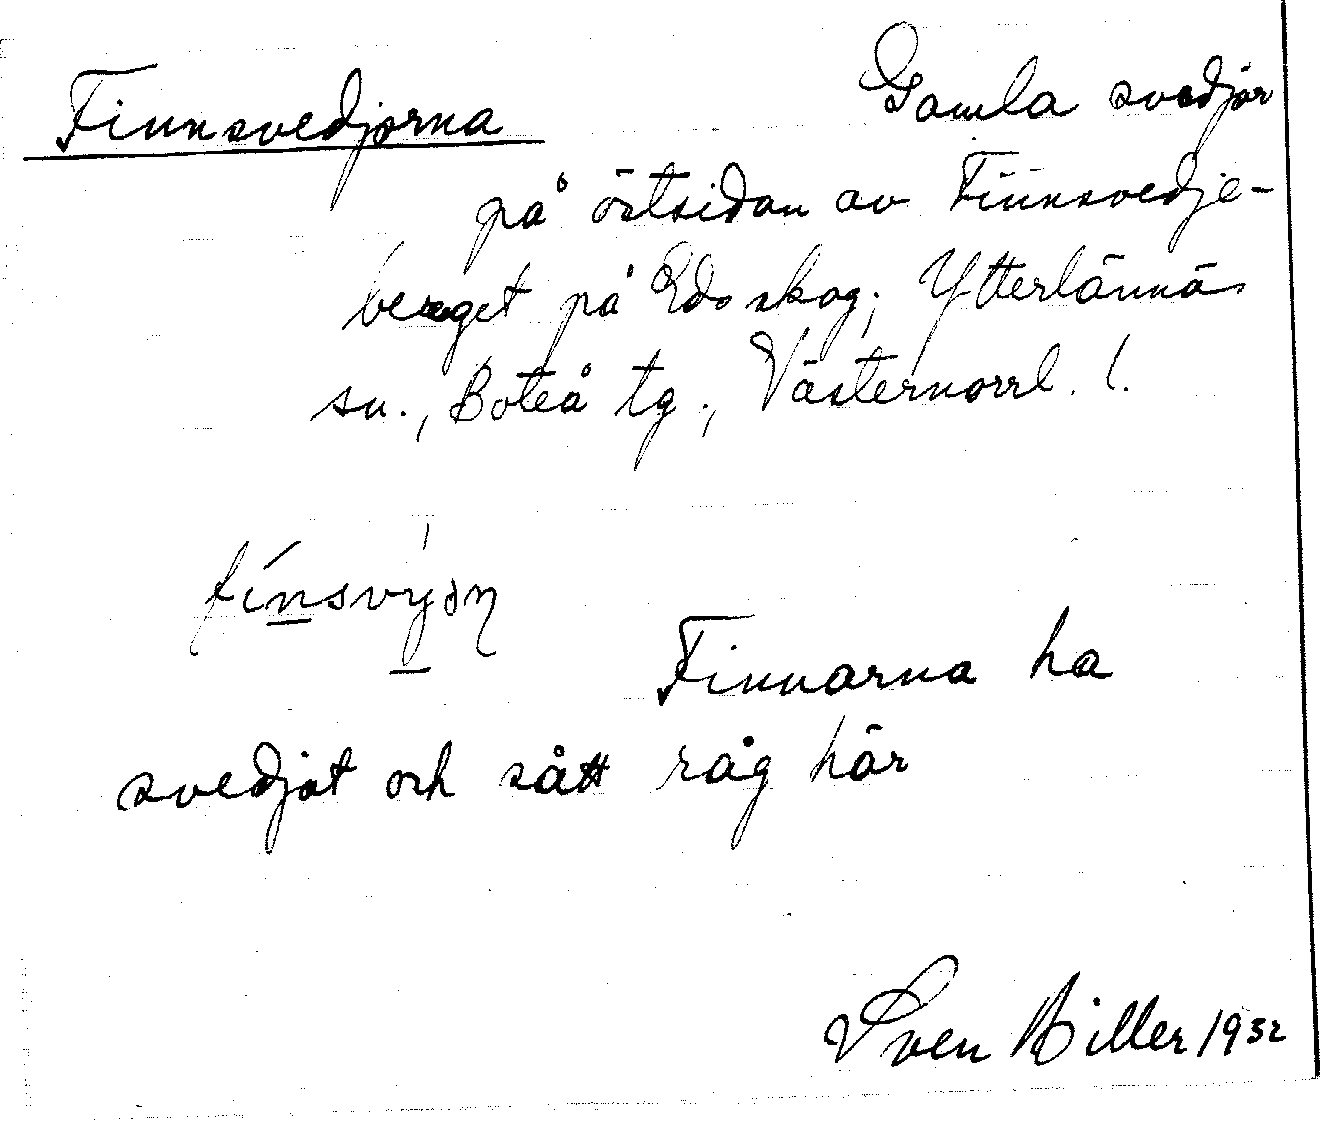 Finnsvedjorna
Gamla svedjor
på östsidan av Finnsvedje-
berget på Eds skog, Ytterlännäs
sn., Boteå tg., Västernorrl. l.
Finnarna ha
svedjat och sått råg här
Sven Hiller 1932